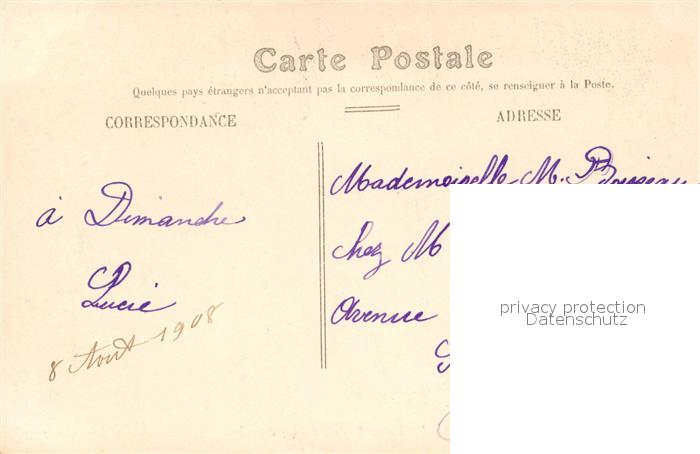 Carte Postale
Quelques pays étrangers n'acceptant pas la correspondance de ce côté, se renseigner à la Poste.
CORRESPONDANCE
ADRESSE
à Dimanche
Lucie
8 Août 1908
Mademoiselle M.
chez M
Avenue
privacy protection
Datenschutz